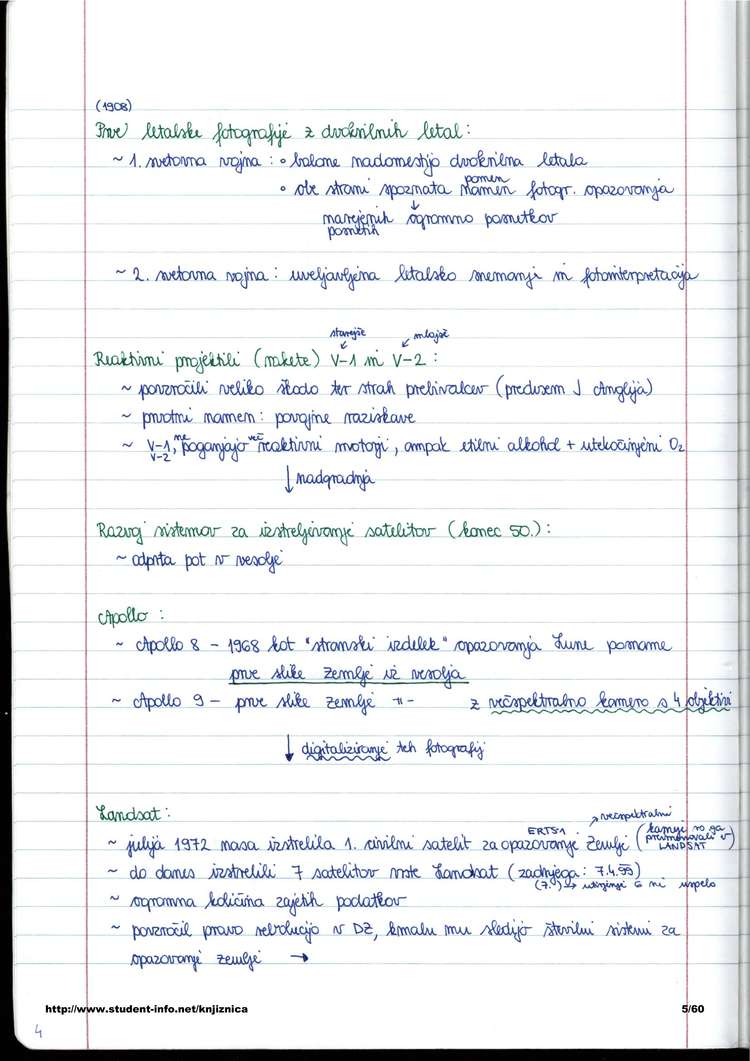 (1908)
Prve letalske fotografije z dvokrilnih letal:
~ 1. svetovna vojna: • balone nadomestijo dvokrilna letala
pomen
• obe strani spoznata namen fotogr. opazovanja
↓
narejenih ogromno posnetkov
posnetih
~ 2. svetovna vojna: uveljavljena letalsko snemanje in fotointerpretacija
starejše mlajše
Reaktivni projektili (rakete) V-1 in V-2:
~ povzročili veliko škodo ter strah prebivalcev (predvsem J Anglija)
~ prvotni namen: povojne raziskave
~ V-1, ne poganjajo več reaktivni motorji, ampak etilni alkohol + utekočinjeni O2
V-2
↓ nadgradnja
Razvoj sistemov za izstreljevanje satelitov (konec 50.):
~ odprta pot v vesolje
Apollo:
~ Apollo 8 - 1968 kot "stranski izdelek" opazovanja Lune posname
prve slike Zemlje iz vesolja
~ Apollo 9 - prve slike Zemlje -"- z večspektralno kamero s 4 objektivi
↓ digitaliziranje teh fotografij
Landsat:
večspektralni
ERTS1
~ julija 1972 nasa izstrelila 1. civilni satelit za opazovanje Zemlje (kasneje so ga preimenovali v LANDSAT)
~ do danes izstrelili 7 satelitov vrste Landsat (zadnjega: 7.4.99)
(7.) → utirjenje 6 ni uspelo
~ ogromna količina zajetih podatkov
~ povzročil pravo revolucijo v DZ, kmalu mu sledijo številni sistemi za
opazovanje zemlje →
http://www.student-info.net/knjiznica 5/60
4